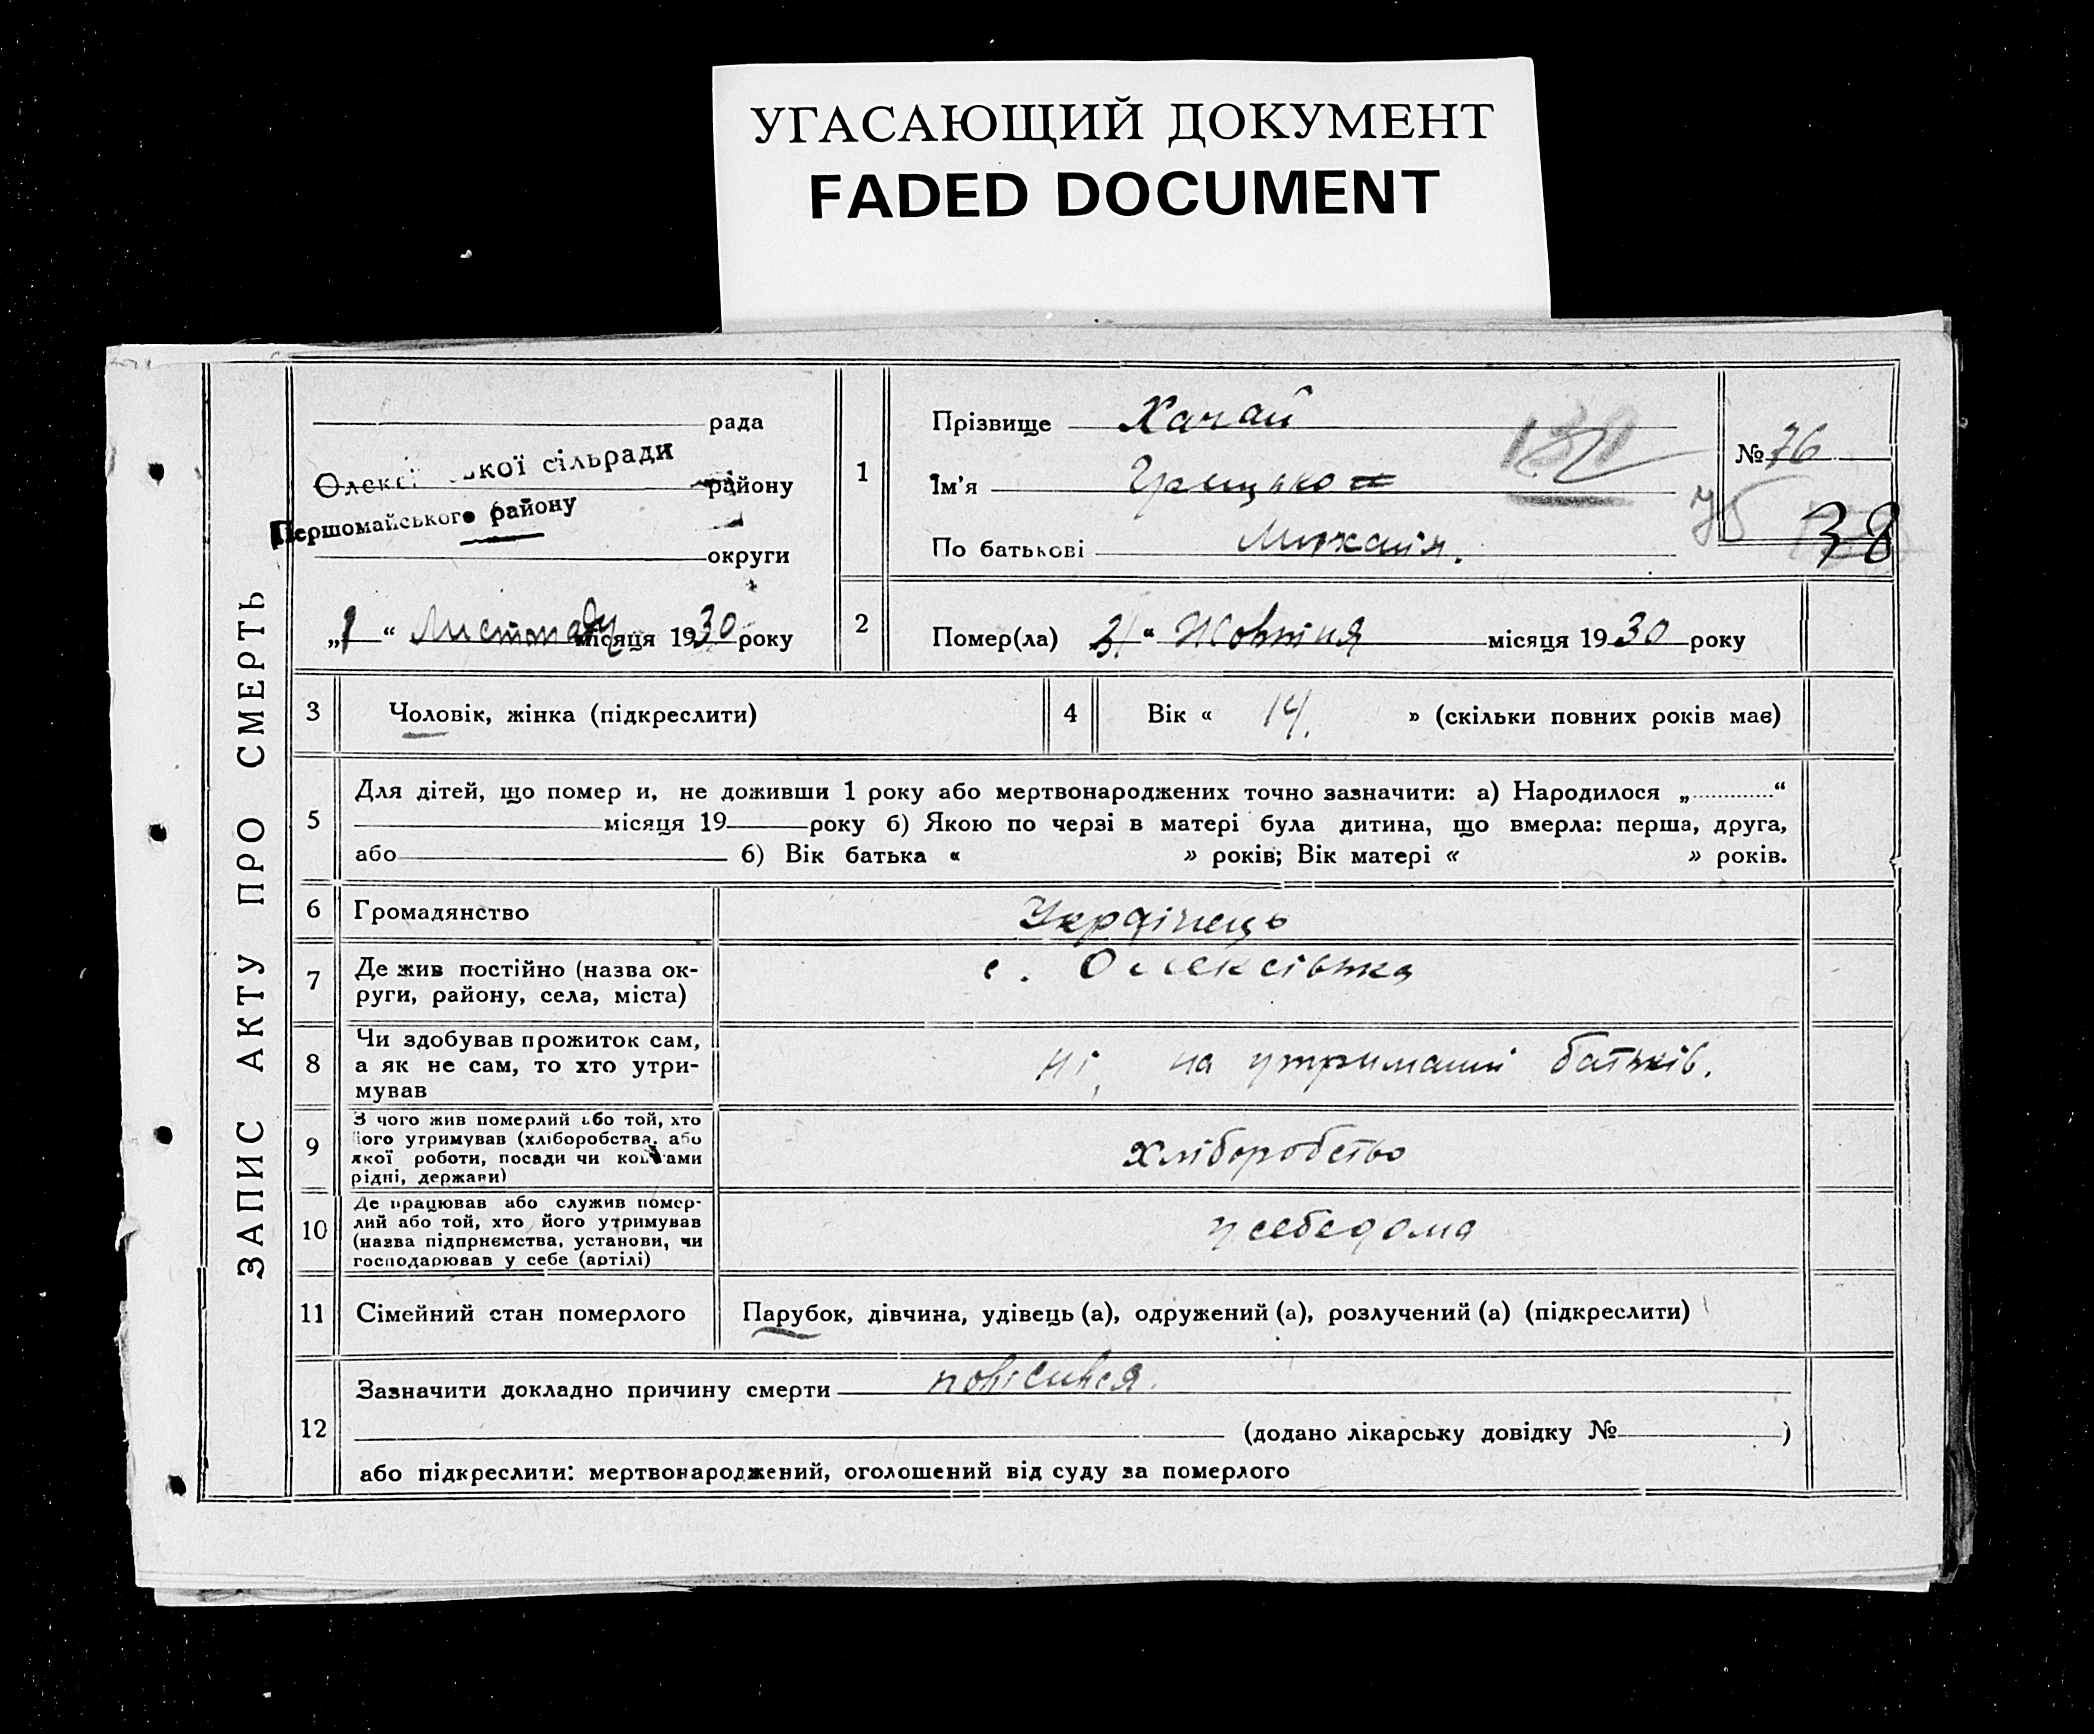 УГАСАЮЩИЙ ДОКУМЕНТ
FADED DOCUMENT
ЗАПИС АКТУ ПРО СМЕРТЬ
рада
кої сільради
району
Першомайського району
округи
„1“ Листопаду місяця 1930 року
1
Прізвище Хачай
Ім'я Грицько
По батькові
№ 76
75
38
2
Помер(ла) 31 “ Жовтня місяця 1930 року
3
Чоловік, жінка (підкреслити)
4
Вік « 14. » (скільки повних років має)
5
Для дітей, що помер и, не доживши 1 року або мертвонароджених точно зазначити: а) Народилося „ “
місяця 19 року б) Якою по черзі в матері була дитина, що вмерла: перша, друга,
або б) Вік батька « » років; Вік матері « » років.
6
Громадянство
Українець
7
Де жив постійно (назва ок-
руги, району, села, міста)
с. Олексіевка
8
Чи здобував прожиток сам,
а як не сам, то хто утри-
мував
ні, на утриманні батьків.
9
З чого жив померлий або той, хто
його утримував (хліборобства, або
якої роботи, посади чи коштами
рідні, держави)
хліборобство
10
Де працював або служив помер-
лий або той, хто його утримував
(назва підприємства, установи, чи
господарював у себе (артілі)
у себе дома
11
Сімейний стан померлого
Парубок, дівчина, удівець (а), одружений (а), розлучений (а) (підкреслити)
12
Зазначити докладно причину смерти повісився.
(додано лікарську довідку № )
або підкреслити: мертвонароджений, оголошений від суду за померлого